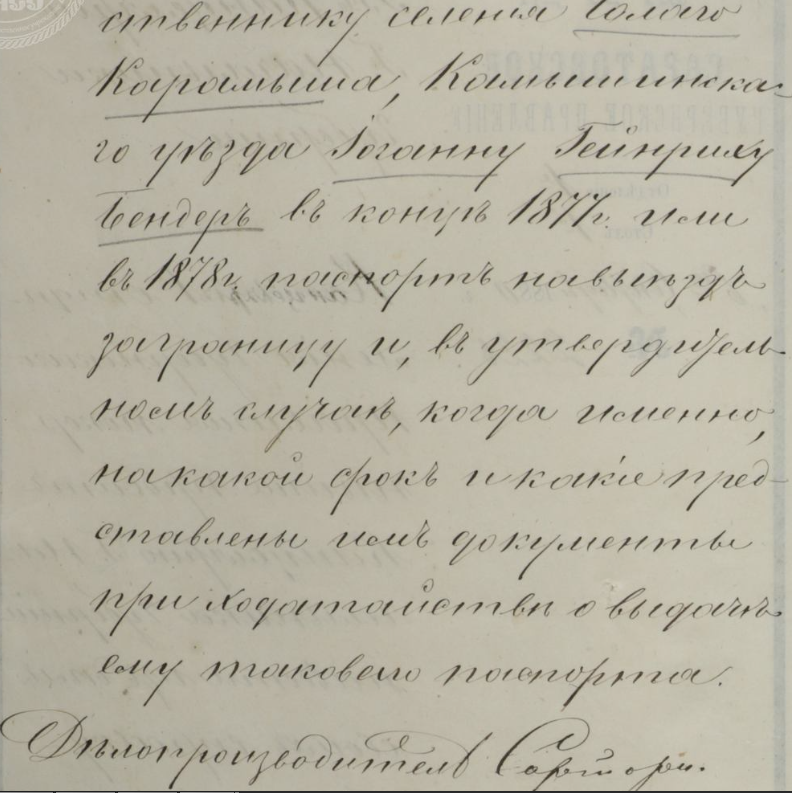 ственнику селенія Голаго
Карамыша, Камышинска-
го уѣзда Іоганну Гейнриху
Бендеръ въ концѣ 1877г. или
въ 1878г. паспортъ на выѣздъ
заграницу и, въ утвердитель-
номъ случаѣ, когда именно,
на какой срокъ и какіе пред-
ставлены имъ документы
при ходатайствѣ о выдачѣ
ему таковаго паспорта.
Дѣлопроизводитель